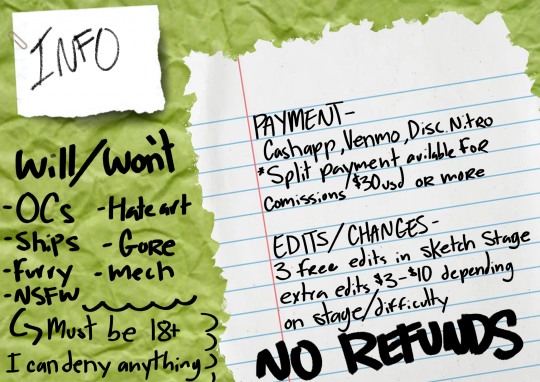 INFO
Will/Won't
-OCs -Hate art
-Ships -Gore
-Furry -mech
-NSFW
Must be 18+
I can deny anything
PAYMENT-
Cashapp, Venmo, Disc. Nitro
*Split payment avilable for
comissions/$30usd or more
EDITS/CHANGES-
3 free edits in sketch stage
extra edits $3-$10 depending
on stage/difficulty
NO REFUNDS